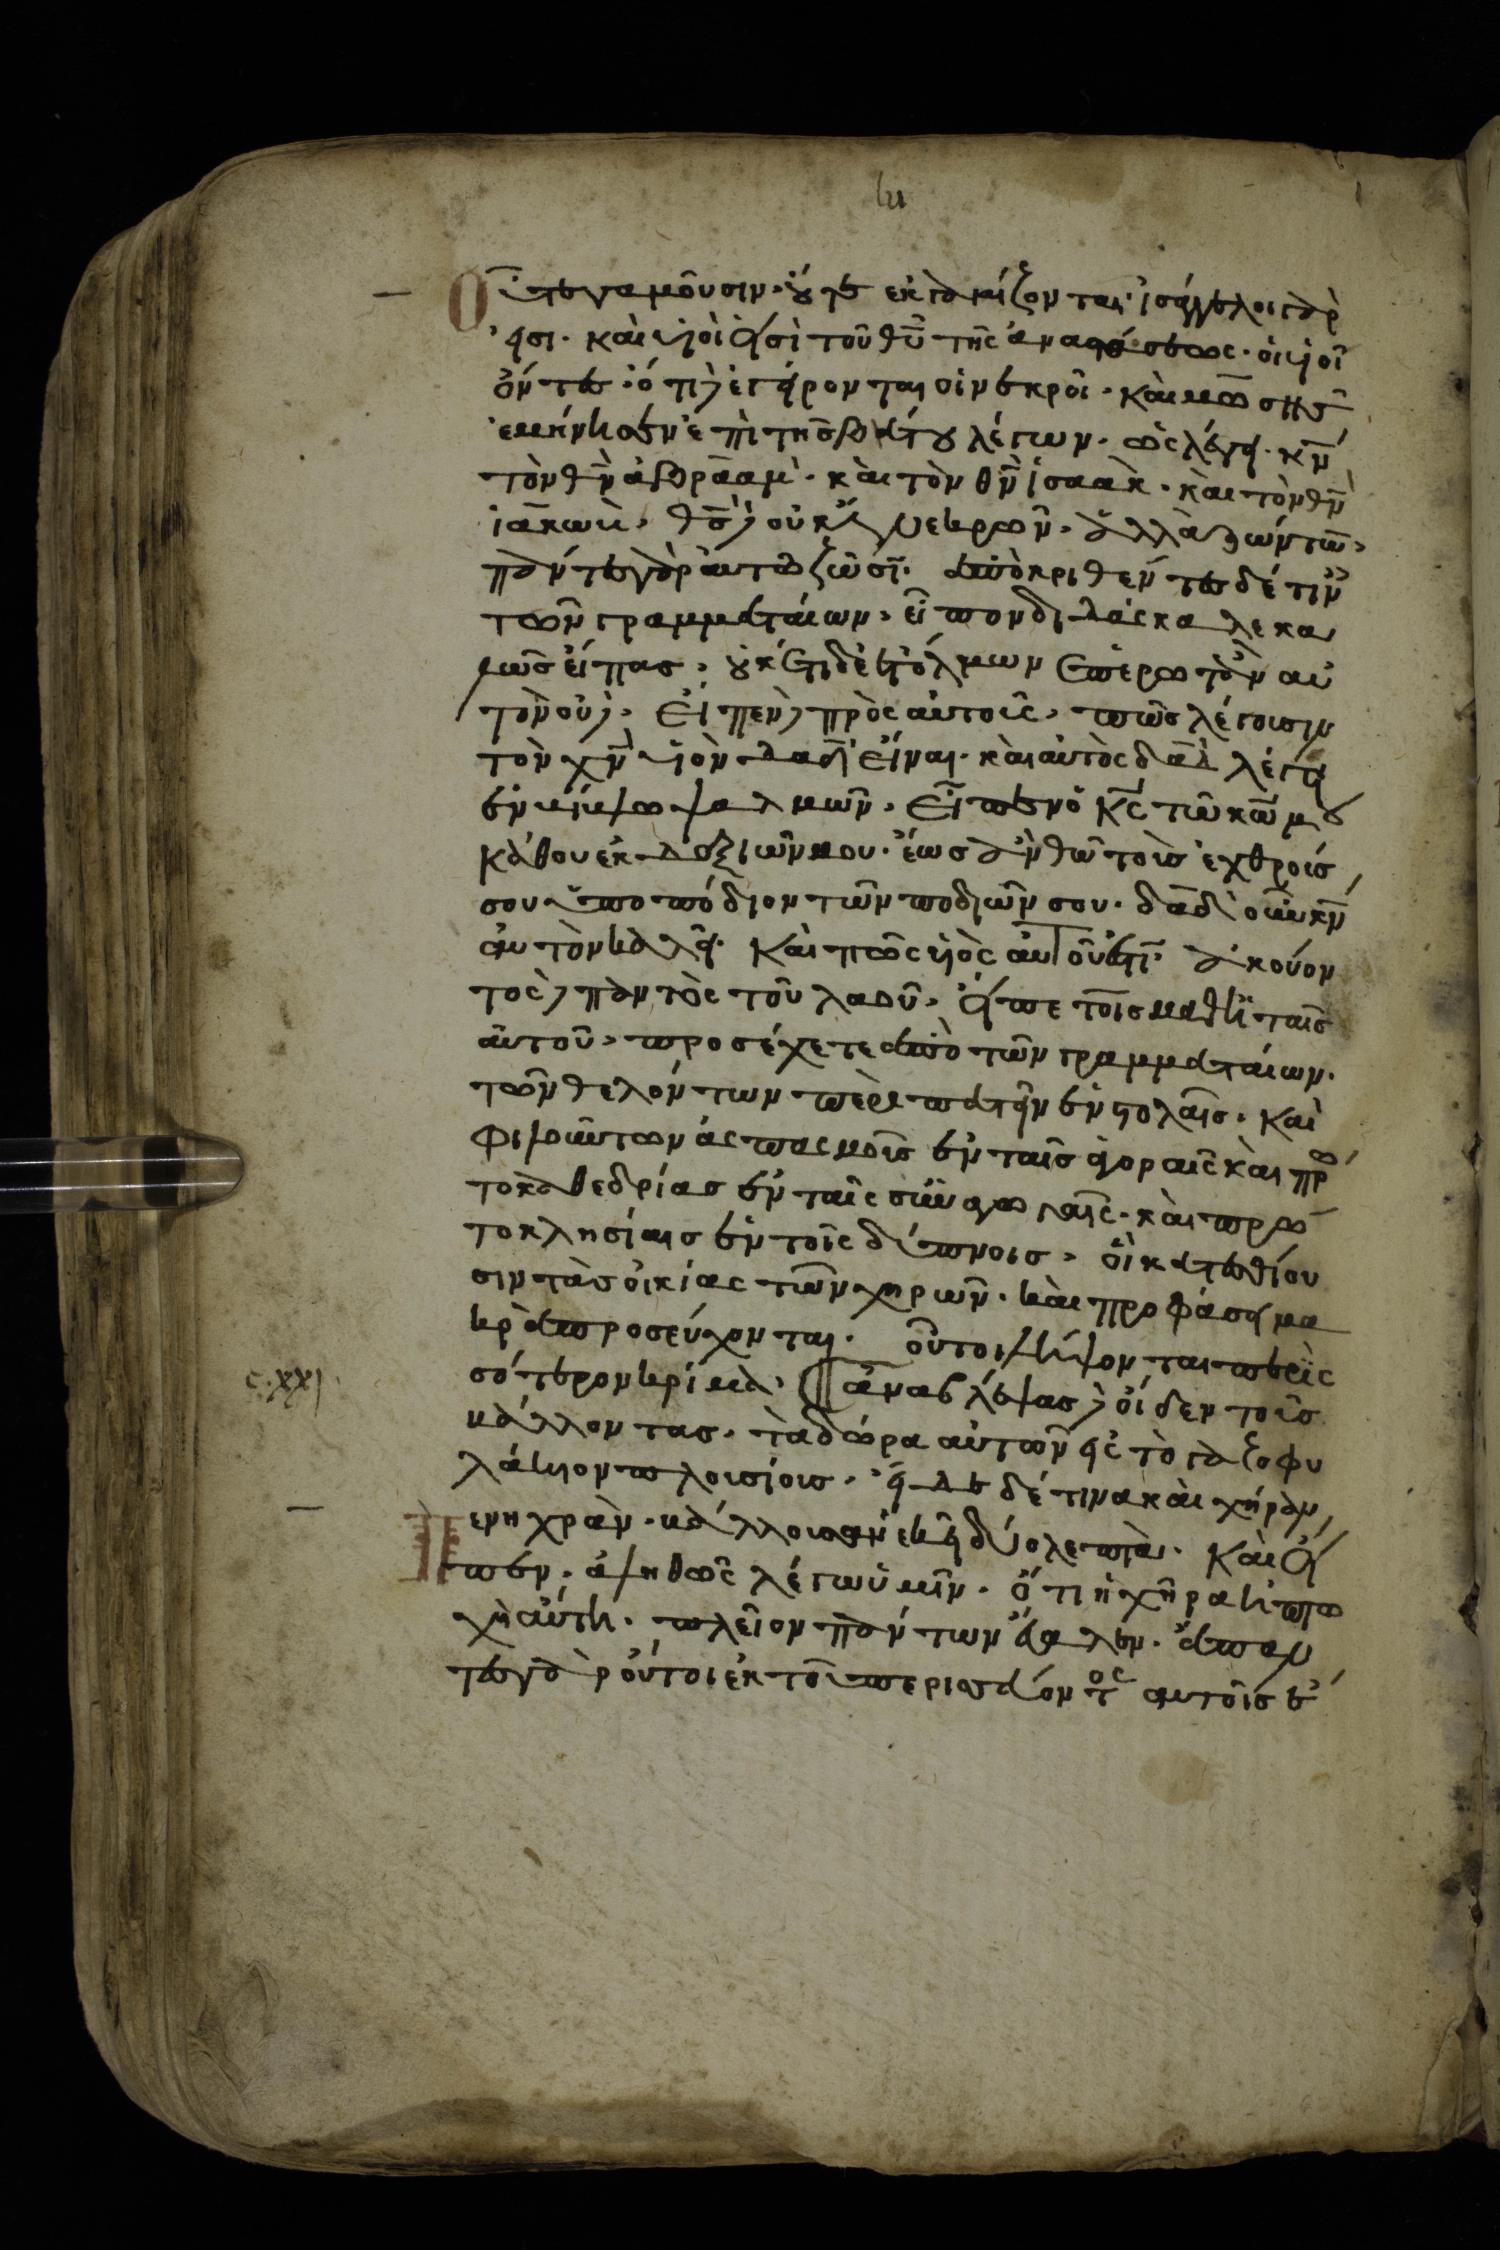 lu
Οὔτε γαμοῦσιν· οὔτε ἐκγαμίζονται· ἰσάγγελοι γάρ
εἰσι· καὶ υἱοὶ εἰσὶ τοῦ θῦ τῆς ἀναστάσεως· οἱ υἱοὶ
ὄντες· ὅτι δὲ ἐγείρονται οἱ νεκροὶ· καὶ μωσῆς
ἐμήνυσεν ἐπὶ τῆς βάτου λέγων· ὡς λέγει· κν
τὸν θν ἀβραὰμ· καὶ τὸν θν ἰσαὰκ· καὶ τὸν θν
ἰακώβ· θς δὲ οὐκ ἔστι νεκρῶν· ἀλλὰ ζώντων·
πάντες γὰρ αὐτῶ ζῶσι· ἀποκριθέντες δέ τινες
τῶν γραμματαίων· εἶπον διδάσκαλε κα
λῶς εἶπας· οὐκέτι δὲ ἐτόλμων ἐπερωτὰν αὐ
τὸν οὐδέν· Εἶπεν δὲ πρὸς αὐτοὺς· πῶς λέγουσιν
τὸν χν υἱὸν δαδ εἶναι· καὶ αὐτὸς δαδ λέγει
ἐν βίβλω ψαλμῶν· Εἶπεν ὁ κς τῶ κω μου
κάθου ἐκ δεξιῶν μου· ἕως ἂν θῶ τοὺς ἐχθρούς
σου ὑποπόδιον τῶν ποδῶν σου· δαδ οὖν κν
αὐτὸν καλεῖ· Καὶ πῶς υἱὸς αὐτοῦ ἐστι· ἀκούον
τος δὲ παντὸς τοῦ λαοῦ· εἶπε τοῖς μαθηταῖς
αὐτοῦ· προσέχετε ἀπὸ τῶν γραμματαίων·
τῶν θελόντων περιπατεῖν ἐν στολαῖς· Καὶ
φιλούντων ἀσπασμοὺς ἐν ταῖς ἀγοραῖς καὶ πρω
τοκαθεδρίας ἐν ταῖς συναγωγαῖς· καὶ πρω
τοκλησίαις ἐν τοῖς δείπνοις· οἳ κατεσθίου
σιν τὰς οἰκίας τῶν χηρῶν· καὶ προφάσει μα
κρὰ προσεύχονται· οὗτοι λήψονται περισ
σότερον κρίμα· ἀναβλέψας δὲ οἶδεν τοὺς
c·xxi·
βάλλοντας· τὰ δῶρα αὐτῶν εἰς τὸ γαζοφυ
λάκιον πλουσίους· εἶδε δέ τινα καὶ χήραν
πενηχρὰν· βάλλουσαν ἐκεῖ δύο λεπτὰ· Καὶ εἶ
πεν· ἀληθῶς λέγω ὑμῖν· ὅτι ἡ χῆρα ἡ πτω
χὴ αὕτη· πλεῖον πάντων ἔβαλεν· ἅπαν
τες γὰρ οὗτοι ἐκ τοῦ περισσεύοντος αὐτοῖς ἔ